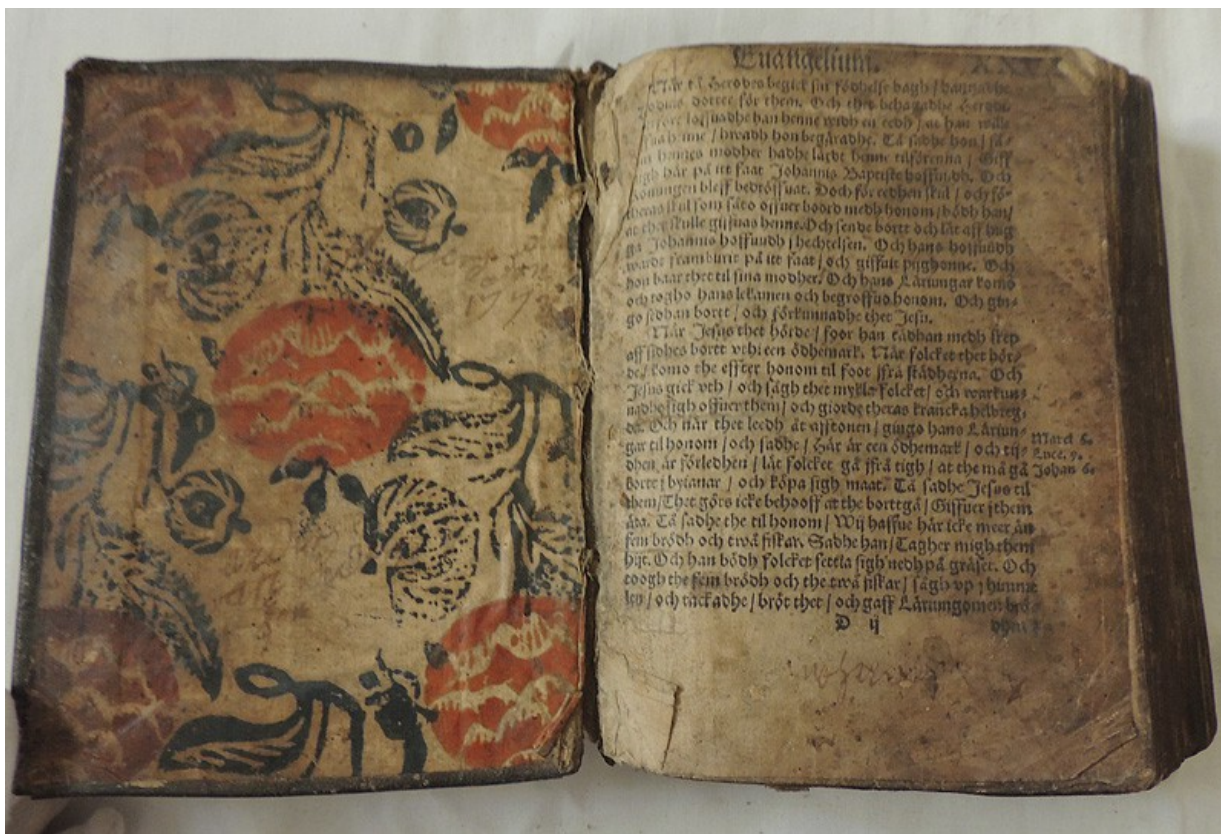 1773
Euangelium.
När tå Herodes begick sin födhelse dagh / dansadhe
dotter för them. Och thet behagadhe Herodi.
loffuadhe han henne widh en eedh / at han wille
henne / hwadh hon begäradhe. Tå sadhe hon / så-
hennes modher hadhe lärdt henne tilförenna / Giff
migh här på itt faat Johannis Baptiste hoffuudh. Och
Konungen bleff bedröffuat. Doch för eedhen skul / och för
theras skul som såto offuer boord medh honom / bödh han /
at thet skulle giffuas henne. Och sende bortt och lät aff hug
ga Johannis hoffuudh j hechtelsen. Och hans hoffuudh
wardt framburit på itt faat / och giffuit pijghonne. Och
hon baar thet til sina modher. Och hans Läriungar komo
och togho hans lekamen och begroffuo honom. Och gin-
go sedhan bortt / och förkunnadhe thet Jesu.
När Jesus thet hörde / foor han tädhan medh skep
aff sidhes bortt vthi een ödhemark. När folcket thet hör-
de / komo the effter honom til foot jfrå städherna. Och
Jesus gick vth / och sågh thet mykla folcket / och warkun-
nadhe sigh offuer them / och giorde theras krancka helbreg-
da. Och när thet leedh åt afftonen / gingo hans Läriun-
gar til honom / och sadhe / Här är een ödhemark / och tij-
dhen är förledhen / låt folcket gå jfrå tigh / at the må gå
bortt j byianar / och köpa sigh maat. Tå sadhe Jesus til
them / Thet görs icke behooff at the borttgå / Giffuer j them
äta. Tå sadhe the til honom / Wij haffue här icke meer än
fem brödh och twå fiskar. Sadhe han / Tagher migh them
hijt. Och han bödh folcket settia sigh nedh på gräset. Och
toogh the fem brödh och the twå fiskar / sågh vp j himme
len / och tackadhe / bröt thet / och gaff Läriungomen brö-
Marci 6.
Luce. 9.
Johan 6.
D ij